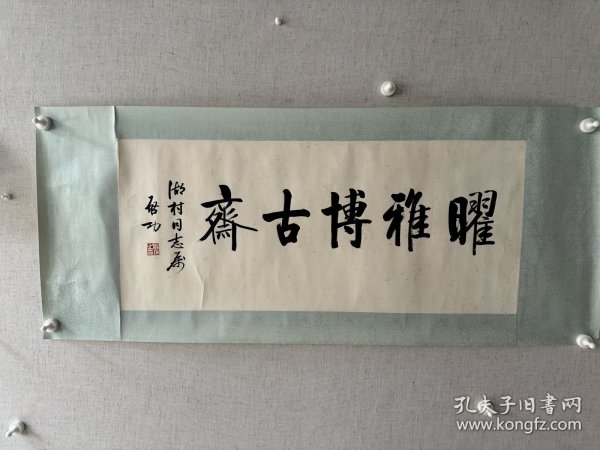 曜雅博古齋
湖村同志属
启功
孔夫子旧書网
www.kongfz.com